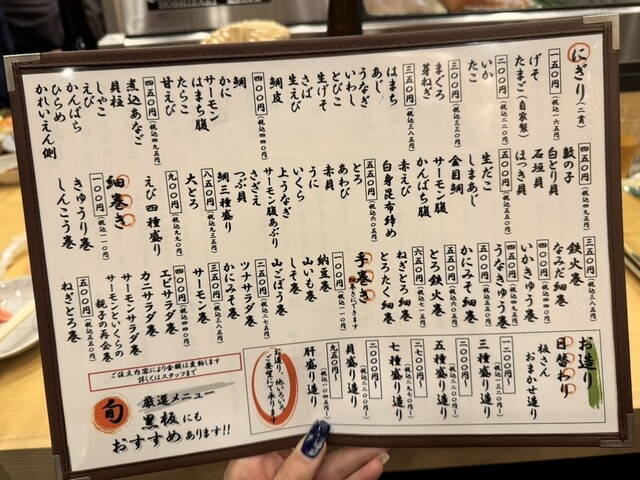 にぎり(二貫)
一五〇円(税込一六五円)
げそ
たまご(自家製)
二〇〇円(税込二二〇円)
いか
たこ
三〇〇円(税込三三〇円)
まぐろ
芽ねぎ
三五〇円(税込三八五円)
はまち
あじ
うなぎ
いわし
とびこ
生げそ
さば
生えび
鯛皮
四〇〇円(税込四四〇円)
鯛
かに
サーモン
はまち腹
たらこ
甘えび
四五〇円(税込四九五円)
煮込あなご
貝柱
しゃこ
えび
かんぱち
ひらめ
かれいえん側
四五〇円(税込四九五円)
数の子
白とり貝
石垣貝
ほっき貝
生だこ
しまあじ
金目鯛
サーモン腹
かんぱち腹
赤えび
白身昆布締め
五五〇円(税込六〇五円)
とろ
あわび
赤貝
うに
いくら
上うなぎ
サーモン腹あぶり
さざえ
つぶ貝
鯛三種盛り
八五〇円(税込九三五円)
大とろ
九〇〇円(税込九九〇円)
えび四種盛り
細巻き
一〇〇円(税込一一〇円)
きゅうり巻
しんこう巻
三五〇円(税込三八五円)
鉄火巻
なみだ細巻
四〇〇円(税込四四〇円)
いかきゅう巻
四五〇円(税込四九五円)
うなきゅう巻
五〇〇円(税込五五〇円)
かにみそ細巻
五五〇円(税込六〇五円)
とろ鉄火巻
六五〇円(税込七一五円)
ねぎとろ細巻
とろたく細巻
手巻き
細巻きにできます
一〇〇円(税込一一〇円)
納豆巻
山いも巻
しそ巻
山ごぼう巻
二五〇円(税込二七五円)
ツナサラダ巻
かにみそ巻
三五〇円(税込三八五円)
サーモン巻
四〇〇円(税込四四〇円)
エビサラダ巻
カニサラダ巻
サーモンサラダ巻
サーモンといくらの
親子の再会巻
五〇〇円(税込五五〇円)
ねぎとろ巻
お造り
日替わり
板さん
おまかせ造り
三種盛り造り
一二〇〇円〜
五種盛り造り
二〇〇〇円〜(税込二二〇〇円)
七種盛り造り
貝盛り造り
肝盛り造り
九五〇円〜(税込一〇四五円)
お造り、他いろいろ
ご要望にて承ります
ご注文内容により金額は変動します
詳しくはスタッフまで
旬
厳選メニュー
黒板にも
おすすめあります!!